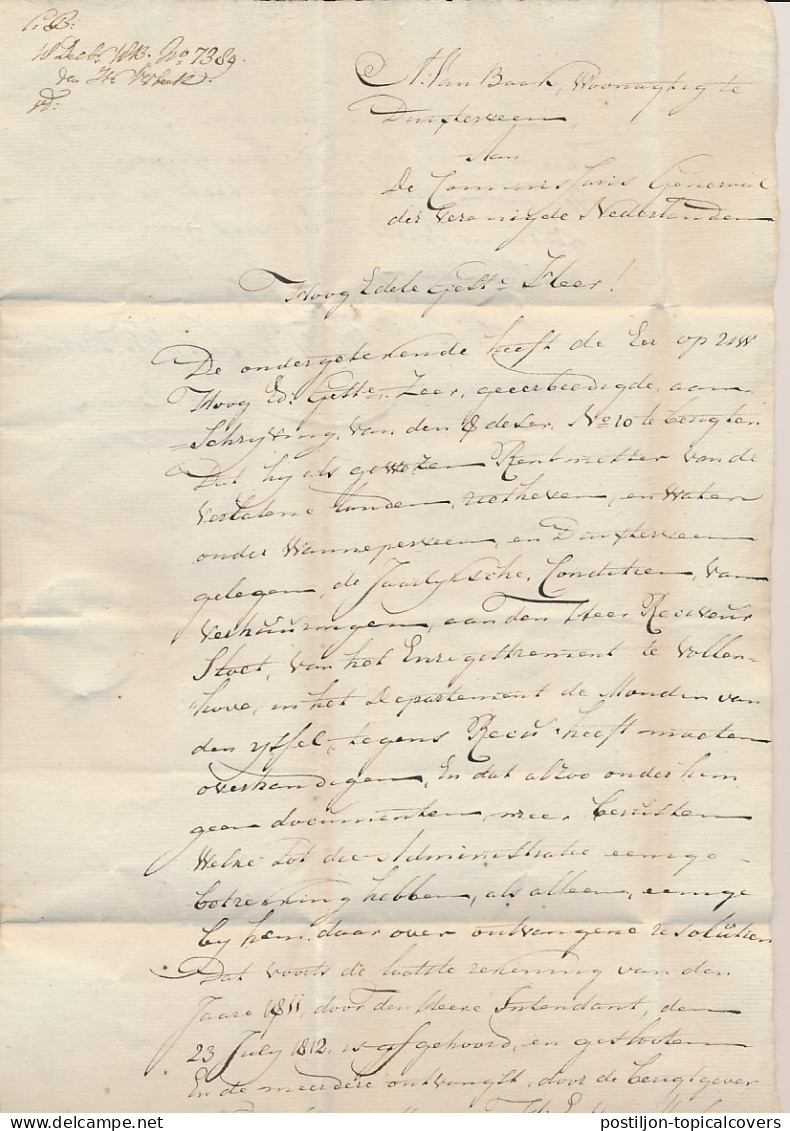 N:o 7389.
A: Van Baak, Woonagtig te
Dinxterveen
Aan
De Commissaris Generaal
der Verenigde Nederlanden
Hoog Edele Gestr: Heer!
De ondergetekende heeft de Eer op uw
Hoog Ed: Gestr: Zeer, geeerbiedigde, aan-
=Schryving, van den 8 deser, No 10 te berigten
Dat hy als gewezen Rentmeester van de
verlatene landen, rietheven, en Water
onder Wanneperveen, en Dinxterveen
gelegen, de Jaarlyksche, Conditien, van
verhuuringen, aan den Heer Receveur
Stoet, van het Enregistrement te Vollen-
"hove, in het Departement de Monden van
den yssel, tegens Reçu heeft moeten
overhandigen, En dat alzoo onder hem
geen documenten, meer berusten
Welke tot die Administratie eenige
betrekking hebben, als alleen, eenige
by hem daar over ontvangene resolutien
Dat voorts de laatste rekening van den
Jaare 1811, door den Heere Intendant, den
23 July 1812. is afgehoord, en geslooten
En de meerdere ontvangst, door de berigtgever
postiljon-topicalcovers